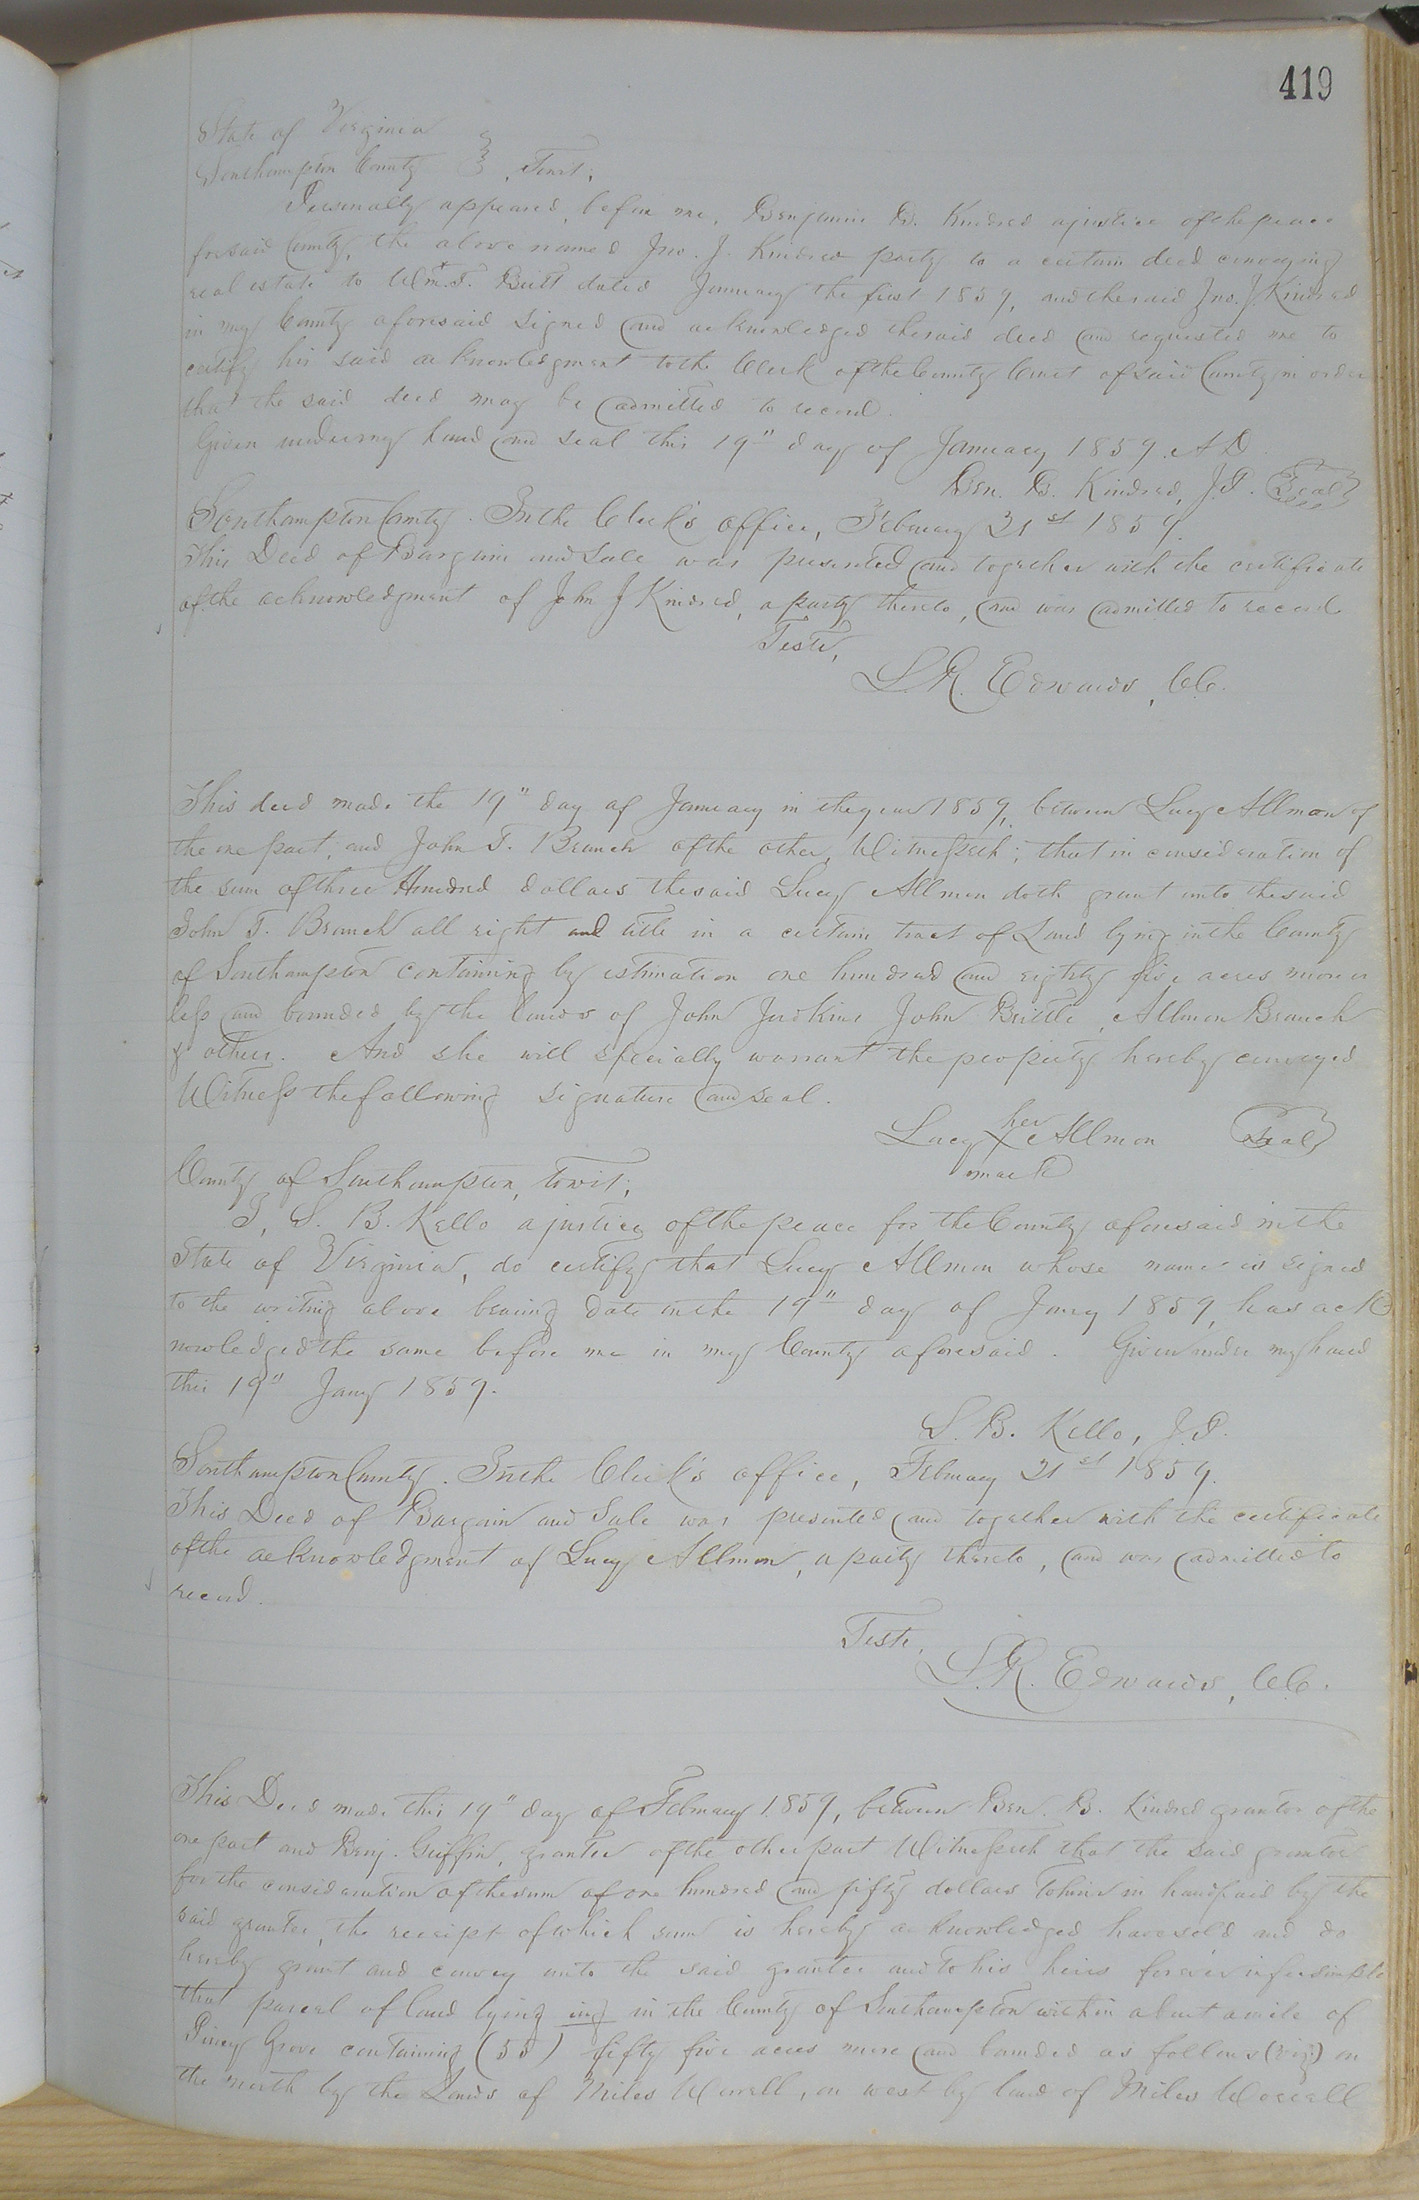 419
State of Virginia
Southampton County } , Towit;
Personally appeared, before me, Benjamin B. Kindred a justice of the peace
for said County, the above named Jno. J. Kindred party to a certain deed conveying
real estate to Wm. T. Britt dated January the first 1859, and the said Jno. J Kindred
in my County aforesaid signed and acknowledged the said deed and requested me to
certify his said acknowledgment to the Clerk of the County Court of said County in order
that the said deed may be admitted to record.
Given under my hand and seal this 19" day of January 1859. A D.
Ben. B. Kindred, J.P. Seal
Southampton County. In the Clerk's office, February 21st 1859.
This Deed of Bargain and Sale was presented and together with the certificate
of the acknowledgment of John J Kindred, a party thereto, and was admitted to record
Teste,
L. R. Edwards, C.C.
This deed made the 19" day of January in the year 1859, between Lucy Allmon of
the one part, and John T. Branch of the other, Witnesseth; that in consideration of
the sum of three Hundred dollars the said Lucy Allmon doth grant unto the said
John T. Branch all right and title in a certain tract of Land lying in the County
of Southampton containing by estimation one hundred and eighty five acres more or
less and bounded by the lands of John Judkins John Brittle, Allmon Branch
& others. And she will specially warrant the property hereby conveyed
Witness the following signature and seal.
her
Lucy X Allmon Seal
mark
County of Southampton, towit;
I, S. B. Kello a justice of the peace for the County aforesaid in the
State of Virginia, do certify that Lucy Allmon whose name is signed
to the writing above bearing date on the 19" day of Jany 1859, has ack
nowledged the same before me in my County aforesaid. Given under my hand
this 19" Jany 1859.
S. B. Kello, J.P.
Southampton County. In the Clerk's office, February 21st 1859.
This Deed of Bargain and Sale was presented and together with the certificate
of the acknowledgment of Lucy Allmon, a party thereto, and was admitted to
record.
Teste,
L. R. Edwards, C.C.
This Deed made this 19" day of February 1859, between Ben. B. Kindred grantor of the
one part and Benj. Griffin, grantee of the other part Witnesseth that the said grantor
for the consideration of the sum of one hundred and fifty dollars to him in hand paid by the
said grantee, the receipt of which sum is hereby acknowledged have sold and do
hereby grant and convey unto the said grantee and to his heirs forever in fee simple
that parcel of land lying ing in the County of Southampton within about a mile of
Piney Grove containing (55) fifty five acres more and bounded as follows (viz) on
the north by the Lands of Miles Worrell, on west by land of Miles Worrell